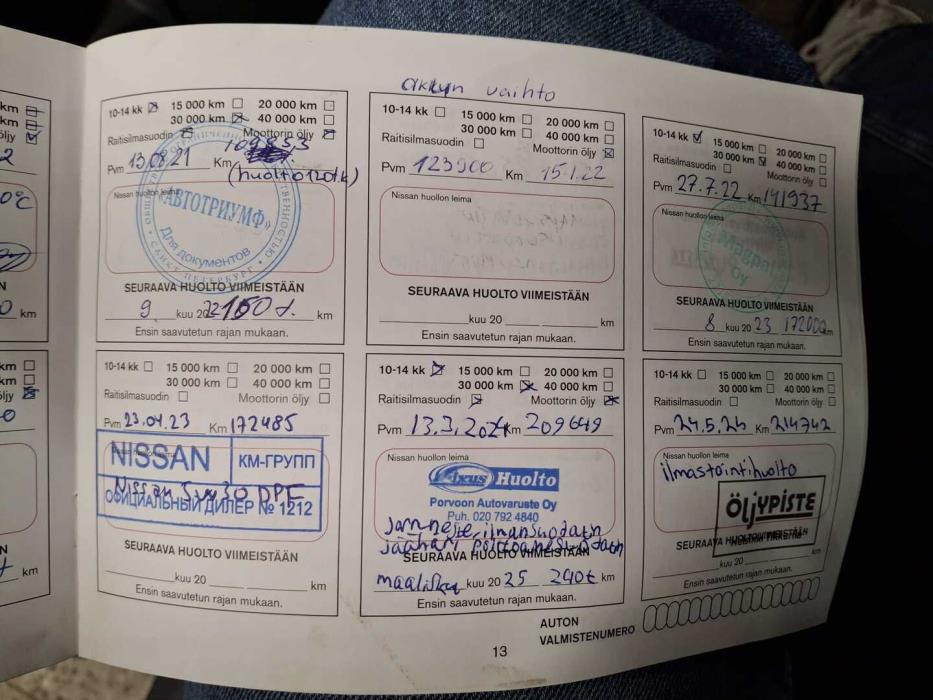 akkyn vaihto
km
km
öljy
2
0°C
km
10-14 kk 15 000 km 20 000 km
30 000 km 40 000 km
Raitisilmasuodin Moottorin öljy
Pvm 13.08.21 Km 109853
(huolto 120t.k)
Nissan huollon leima
«АВТОТРИУМФ»
Для документов
САНКТ-ПЕТЕРБУРГ
SEURAAVA HUOLTO VIIMEISTÄÄN
9 kuu 20 22 150t. km
Ensin saavutetun rajan mukaan.
10-14 kk 15 000 km 20 000 km
30 000 km 40 000 km
Raitisilmasuodin Moottorin öljy
Pvm 123900 Km 15.1.22
Nissan huollon leima
SEURAAVA HUOLTO VIIMEISTÄÄN
kuu 20 km
Ensin saavutetun rajan mukaan.
10-14 kk 15 000 km 20 000 km
30 000 km 40 000 km
Raitisilmasuodin Moottorin öljy
Pvm 27.7.22 Km 141937
Nissan huollon leima
Oy
SEURAAVA HUOLTO VIIMEISTÄÄN
8 kuu 20 23 172000 km
Ensin saavutetun rajan mukaan.
km
km
öljy
km
10-14 kk 15 000 km 20 000 km
30 000 km 40 000 km
Raitisilmasuodin Moottorin öljy
Pvm 23.04.23 Km 172485
NISSAN КМ-ГРУПП
Nissan 5w30 DPF
ОФИЦИАЛЬНЫЙ ДИЛЕР № 1212
SEURAAVA HUOLTO VIIMEISTÄÄN
kuu 20 km
Ensin saavutetun rajan mukaan.
10-14 kk 15 000 km 20 000 km
30 000 km 40 000 km
Raitisilmasuodin Moottorin öljy
Pvm 13.3.2024 Km 209649
Nissan huollon leima
Fixus Huolto
Porvoon Autovaruste Oy
Puh. 020 792 4840
jarruneste, ilmansuodatin
SEURAAVA HUOLTO VIIMEISTÄÄN
maalisku kuu 20 25 240t km
Ensin saavutetun rajan mukaan.
10-14 kk 15 000 km 20 000 km
30 000 km 40 000 km
Raitisilmasuodin Moottorin öljy
Pvm 24.5.24 Km 214742
Nissan huollon leima
ilmastointihuolto
ÖLJYPISTE
SEURAAVA HUOLTO VIIMEISTÄÄN
kuu 20 km
Ensin saavutetun rajan mukaan.
AUTON
VALMISTENUMERO
13